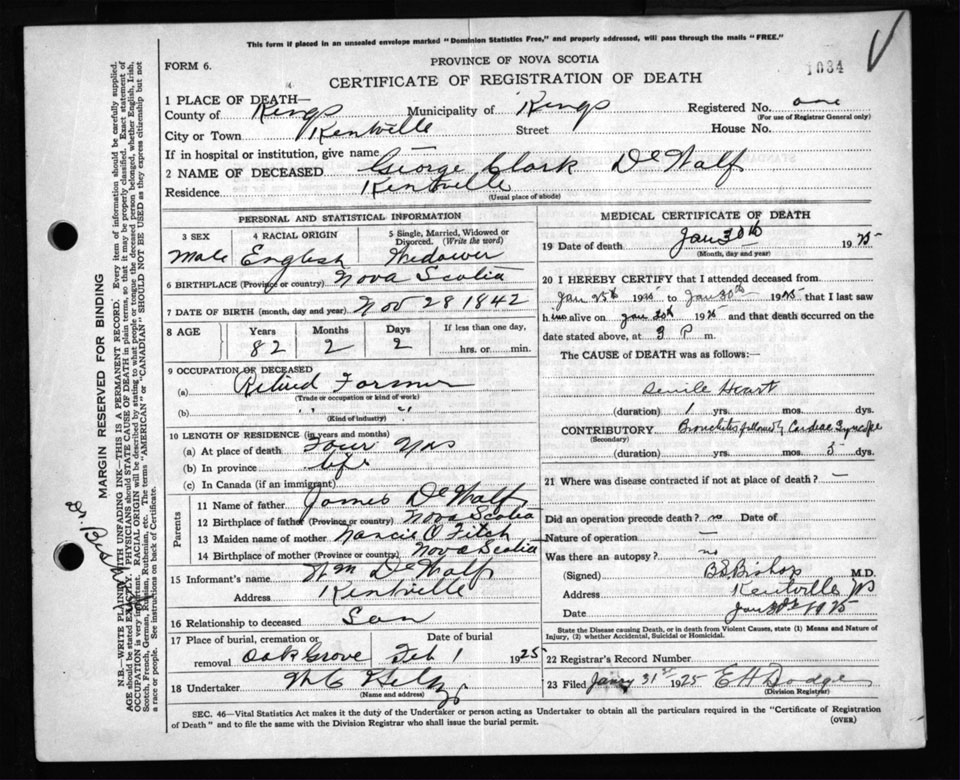 This form if placed in an unsealed envelope marked "Dominion Statistics Free," and properly addressed, will pass through the mails "FREE."
FORM 6.
PROVINCE OF NOVA SCOTIA
1034
CERTIFICATE OF REGISTRATION OF DEATH
1 PLACE OF DEATH—
County of Kings Municipality of Kings Registered No. one
(For use of Registrar General only)
City or Town Kentville Street House No.
If in hospital or institution, give name —
2 NAME OF DECEASED George Clark DeWolf
Residence Kentville
(Usual place of abode)
PERSONAL AND STATISTICAL INFORMATION
3 SEX 4 RACIAL ORIGIN 5 Single, Married, Widowed or Divorced. (Write the word)
Male English Widower
6 BIRTHPLACE (Province or country) Nova Scotia
7 DATE OF BIRTH (month, day and year) Nov 28 1842
8 AGE Years Months Days If less than one day,
82 2 2 hrs. or min.
9 OCCUPATION OF DECEASED
(a) Retired Farmer
(Trade or occupation or kind of work)
(b) " "
(Kind of industry)
10 LENGTH OF RESIDENCE (in years and months)
(a) At place of death Four Yrs
(b) In province life
(c) In Canada (if an immigrant)
Parents
11 Name of father James DeWolf
12 Birthplace of father (Province or country) Nova Scotia
13 Maiden name of mother Nancie O Fitch
14 Birthplace of mother (Province or country) Nova Scotia
15 Informant's name Wm DeWolf
Address Kentville
16 Relationship to deceased Son
17 Place of burial, cremation or removal Oak Grove Date of burial Feb 1 1925
18 Undertaker W C
(Name and address)
MEDICAL CERTIFICATE OF DEATH
19 Date of death Jan 30th 1925
(Month, day and year)
20 I HEREBY CERTIFY that I attended deceased from
Jan 25th 1925 to Jan 30th 1925 that I last saw
him alive on Jan 30th 1925 and that death occurred on the
date stated above, at 3 P m.
The CAUSE of DEATH was as follows:
Senile Heart
(duration) 1 yrs. mos. dys.
CONTRIBUTORY Bronchitis followed by Cardiac Syncope
(Secondary)
(duration) yrs. mos. 5 dys.
21 Where was disease contracted if not at place of death? —
Did an operation precede death? no Date of
Nature of operation —
Was there an autopsy? no
(Signed) B S Bishop M.D.
Address Kentville NS
Date Jan 30th 1925
State the Disease causing Death, or in death from Violent Causes, state (1) Means and Nature of Injury, (2) whether Accidental, Suicidal or Homicidal.
22 Registrar's Record Number
23 Filed Jany 31st 1925 E H Dodge
(Division Registrar)
SEC. 46—Vital Statistics Act makes it the duty of the Undertaker or person acting as Undertaker to obtain all the particulars required in the "Certificate of Registration
of Death" and to file the same with the Division Registrar who shall issue the burial permit.
(OVER)
MARGIN RESERVED FOR BINDING
N.B.—WRITE PLAINLY WITH UNFADING INK—THIS IS A PERMANENT RECORD. Every item of information should be carefully supplied.
AGE should be stated EXACTLY. PHYSICIANS should STATE CAUSE OF DEATH in plain terms, so that it may be properly classified. Exact statement of
OCCUPATION is very important. RACIAL ORIGIN will be described by stating to what people or tongue the deceased person belonged, whether English, Irish,
Scotch, French, German, Russian, Ruthenian, etc. The terms "AMERICAN" or "CANADIAN" SHOULD NOT BE USED as they express citizenship but not
a race or people. See instructions on back of Certificate.